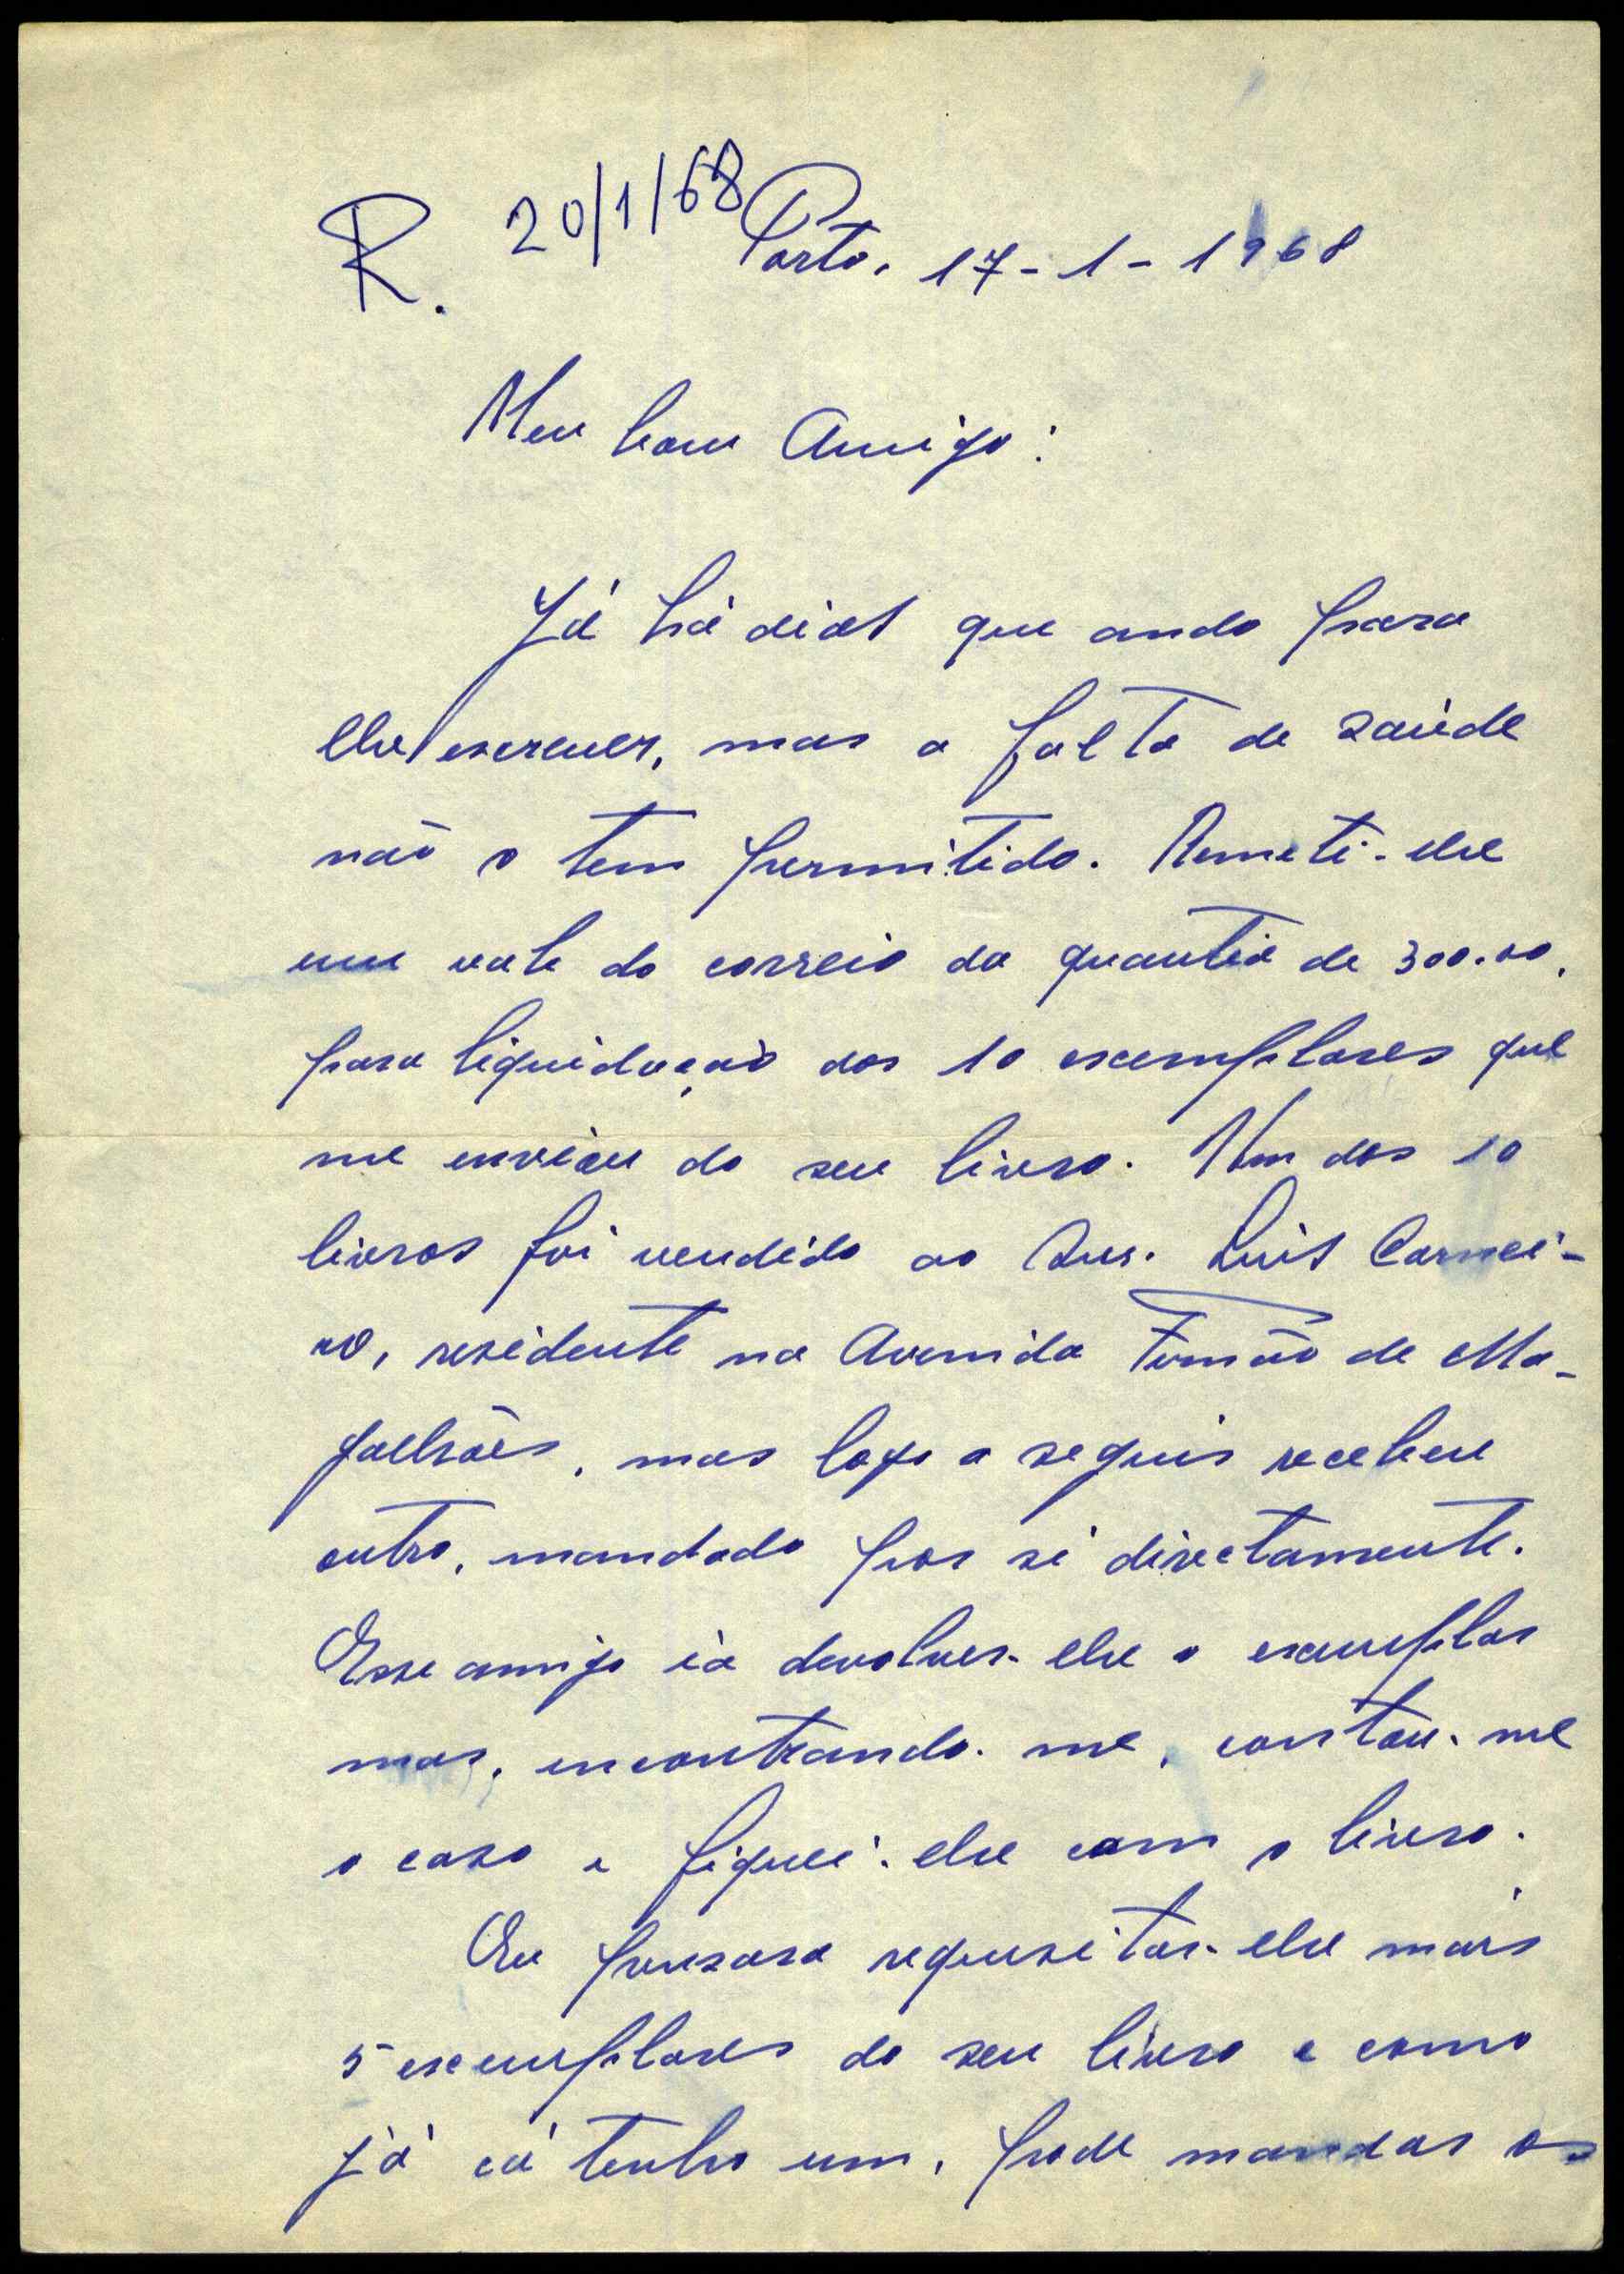 R. 20/1/68
Porto, 17-1-1968
Meu bom Amigo:
Já há dias que ando para
lhe escrever, mas a falta de saúde
não o tem permitido. Remeti-lhe
um vale do correio da quantia de 300.00,
para liquidação dos 10 exemplares que
me enviou do seu livro. Um dos 10
livros foi vendido ao Snr. Luís Carnei-
ro, residente na Avenida Fernão de Ma-
galhães, mas logo a seguir recebeu
outro, mandado por si directamente.
Esse amigo ia devolver-lhe o exemplar
mas, encontrando-me, contou-me
o caso e fiquei-lhe com o livro.
Eu pensara requisitar-lhe mais
5 exemplares do seu livro e como
já cá tenho um, pode mandar os